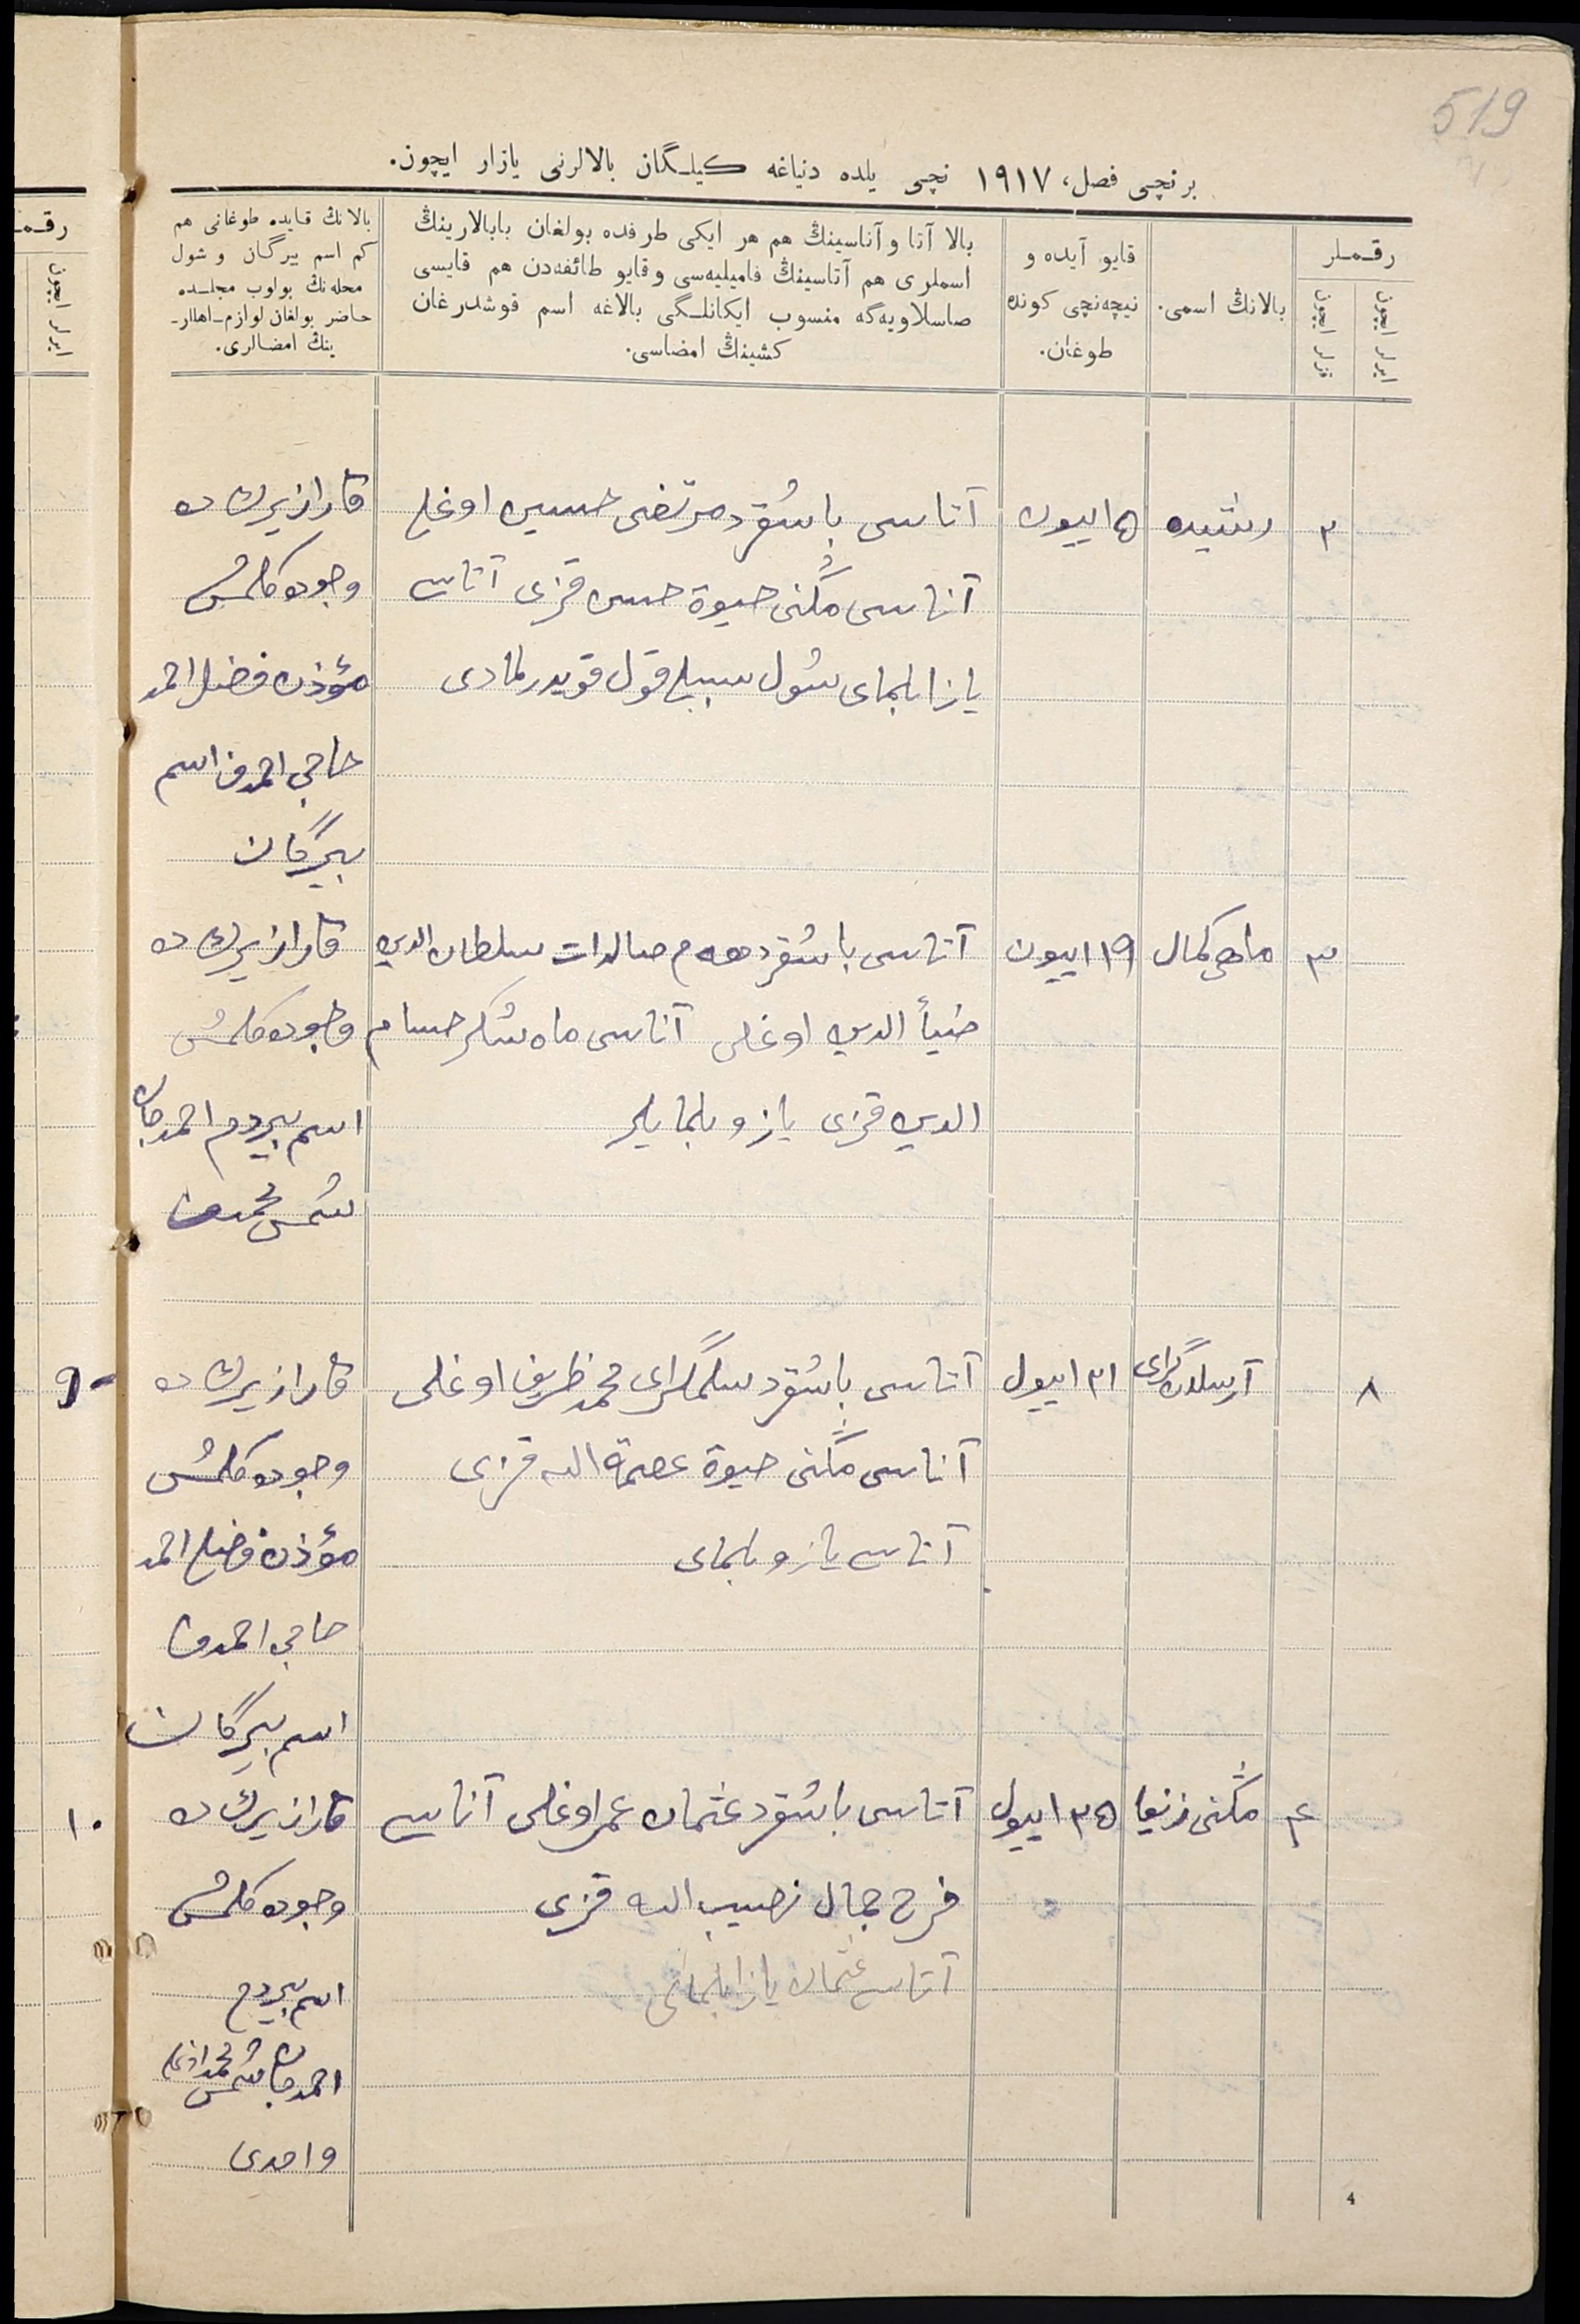 519
برنچی فصل، ١٩١٧ نچی یلده دنیاغه کیلـگان بالالرنی یازار ایچون.
رقـمـلر
ایرلر ایچون
قزلر ایچون
بالانڭ اسمی.
قایو آیده و
نیچه‌نچی کونده
طوغان.
بالا آتا و آناسینڭ هم هر ایکی طرفده بولغان بابالارینڭ
اسملری هم آتاسینڭ فامیلیه‌سی و قایو طائفه‌دن هم قایسی
صاسلاویه‌گه منسوب ایکانلـگی بالاغه اسم قوشدرغان
کشینڭ امضاسی.
بالانڭ قایده طوغانی هم
کم اسم بیرگان و شول
محله‌نڭ بولوب مجلـسده
حاضر بولغان لوازم-اهللر-
ینڭ امضالری.
٢
رشیده
١٥ اییون
آتاسی باشقرد مرتضی حسین اوغلی
آناسی مڭنی حیوة حسن قزی آتاسی
یازا بلمای شول سببلی قول قویدرلمادی
قارازیرك ده
وجوده کلمش
مؤذن فضل احمد
حاجی احمدف اسم
بیرگان
٣
ماهی کمال
١٩ اییون
آتاسی باشقرد هم صالدات سلطان الدین
ضیأ الدین اوغلی آناسی ماه شکر حسام
الدین قزی یازو بلمایلر
قارازیرك ده
وجوده کلمش
اسم بیردم احمدجان
شمس محمدف
٨
آرسلان گرای
٢١ اییول
آتاسی باشقرد سلمگرای محمد ظریف اوغلی
آناسی مڭنی حیوة عصمة الله قزی
آتاسی یازو بلمای
قارازیرك ده
وجوده کلمش
مؤذن فضل احمد
حاجی احمدف
اسم بیرگان
٤
مڭنی زنیفا
٢٥ اییول
آتاسی باشقرد عثمان عمر اوغلی آناسی
فرح جمال نصیب الله قزی
آتاسی عثمان یازا بلمای
قارازیرك ده
وجوده کلمش
اسم بیردم
احمدجان شمس محمد اوغلی
واحدی
4
رقـمـ
ایرلر ایچون
٩
١٠